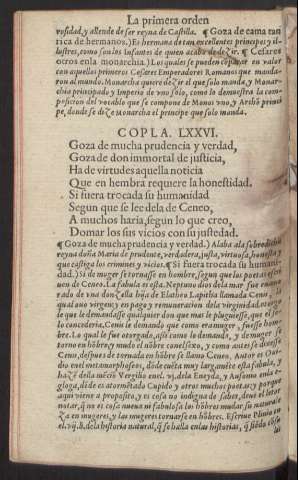 La primera orden
rosidad, y allende de ser reyna de Castilla. ¶ Goza de cama tan
rica de hermanos.) Es hermana de tan excellentes principes y il-
lustres, como son los Infantes de quien acaba de dezir. ¶ Cesares
otros en la monarchia.) Los quales se pueden comparar en valor
con aquellos primeros Cesares Emperadores Romanos que manda-
ron al mundo. Monarcha quiere dezir el que solo manda, y Monar-
chia principado y Imperio de vno solo, como lo demuestra la com-
posicion del vocablo que se compone de Monos vno, y Archõ princi-
pe, donde se dize Monarcha el principe que solo manda.
COPLA. LXXVI.
Goza de mucha prudencia y verdad,
Goza de don immortal de justicia,
Ha de virtudes aquella noticia
Que en hembra requiere la honestidad.
Si fuera trocada su humanidad
Segun que se lee dela de Ceneo,
A muchos haria, segun lo que creo,
Domar los sus vicios con su justedad.
¶ Goza de mucha prudencia y verdad.) Alaba ala sobredicha
reyna doña Maria de prudente, verdadera, justa, virtuosa, honesta y
que castiga los crimines y vicios. ¶ Si fuera trocada su humani-
dad.) Si de muger se tornasse en hombre, segun que los poetas
uen de Ceneo. La fabula es esta. Neptuno dios dela mar fue enamo-
rado de vna donzella hija de Elato Lapitha llamada Cenis, la
qual auo virgen; y en pago y remuneracion dela virginidad, otorgo
le que le demandasse qualquier don que mas le pluguiesse, que el se
lo concederia. Cenis le demando que como era muger, fuesse hom-
bre. Lo qual le fue otorgado, assi como lo demando, y de muger se
torno en hõbre; y mudo el nõbre con el sexo, y como antes se dezia
Cenis, despues de tornada en hõbre se llamo Ceneo. Autor es Oui-
dio en el metamorphoseos, dõde cuẽta muy largamẽte esta fabula, y
haze della mẽciõ Vergilio enel. vj. dela Eneyda, y Ausonio enla e-
gloga, dõde es atormẽtado Cupido y otros muchos poetas: y porque
aqui viene a proposito, y es cosa no indigna de saber, deue el letor
notar, q̃ no es cosa nueua ni fabulosa los hõbres mudar su natura-
za en mugeres, y las mugeres tornarse en hõbres. Escriue Plinio en
el. vij. li. dela historia natural, q̃ se halla enlas historias, q̃ siẽdo cõsu-
les